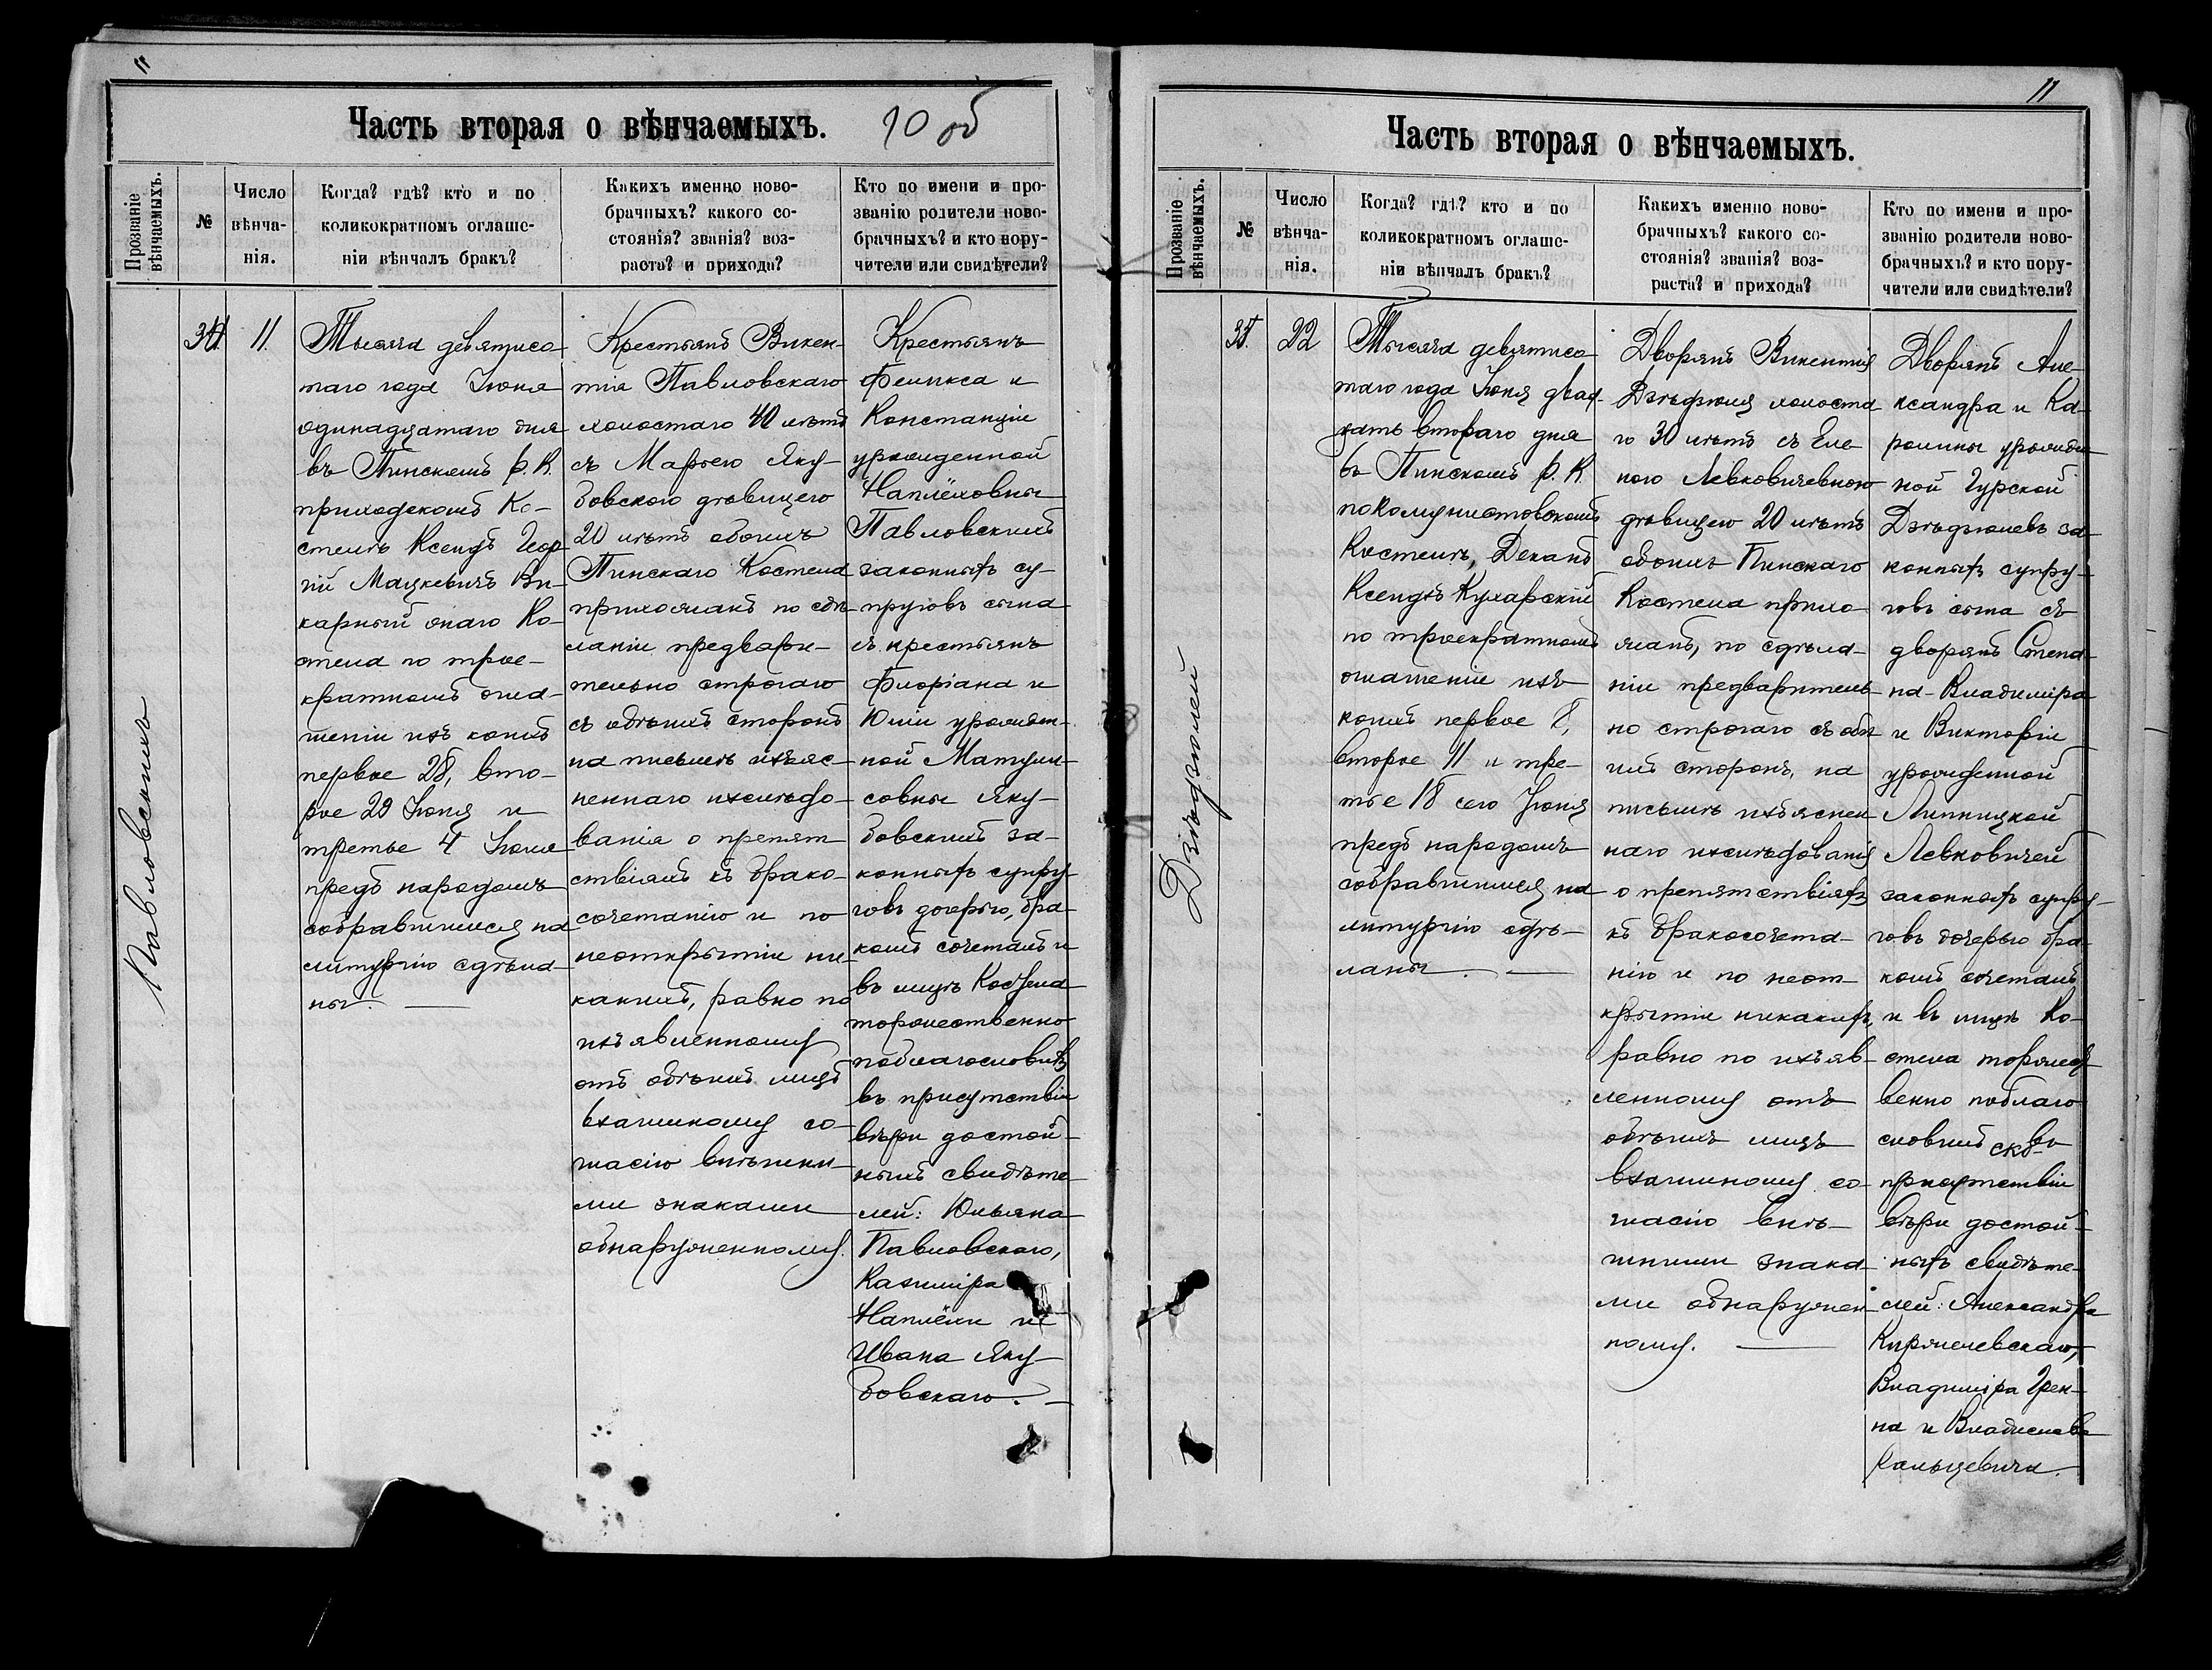 11
Часть вторая о вѣнчаемыхъ. 10 об
Прозваніе вѣнчаемыхъ.
№
Число вѣнча-
нія.
Когда? гдѣ? кто и по
коликократномъ оглаше-
ніи вѣнчалъ бракъ?
Какихъ именно ново-
брачныхъ? какого со-
стоянія? званія? воз-
раста? и прихода?
Кто по имени и про-
званію родители ново-
брачныхъ? и кто пору-
чители или свидѣтели?
Павловскихъ
34
11.
Тысяча девятисо-
таго года Іюня
одинадцатаго дня
въ Пинскомъ Р. К.
приходскомъ Ко-
стелѣ Ксендзъ Геор
гій Мацкевичъ Ви-
карный онаго Ко-
стела по трое-
кратномъ огла-
шеніи изъ коихъ
первое 28, вто-
рое 29 и
третье 4 Іюня
предъ народомъ
собравшимся на
литургію сдѣла-
ны.
Крестьянъ Викен-
тія Павловскаго
холостаго 40 лѣтъ
съ Маріею Яку-
бовскою дѣвицею
20 лѣтъ обоихъ
Пинскаго Костела
прихожанъ по сдѣ-
ланіи предвари-
тельно строгаго
съ обѣихъ сторонъ
на письмѣ изъяс-
неннаго изслѣдо-
ванія о препят
ствіяхъ къ брако-
сочетанію и по
неоткрытіи ни-
какихъ, равно по
изъявленному
отъ обѣихъ лицъ
взаимному со-
гласію внѣшни-
ми знаками
обнаруженному.
Крестьянъ
Феликса и
Констанціи
урожденной
Наплёховны
Павловскихъ
законныхъ су-
пруговъ сына
съ крестьянъ
Флоріана и
Юліи урожден-
ной Матуш-
совны Яку-
бовскихъ за-
конныхъ супру-
говъ дочерью, бра-
комъ сочеталъ и
въ лицѣ Костела
торжественно
поблагословилъ
въ присутствіи
вѣры достой-
ныхъ свидѣте-
лей: Юльяна
Павловскаго,
Казиміра
и
Ивана Яку-
бовскаго.
11
Часть вторая о вѣнчаемыхъ.
Прозваніе вѣнчаемыхъ.
№
Число вѣнча-
нія.
Когда? гдѣ? кто и по
коликократномъ оглаше-
ніи вѣнчалъ бракъ?
Какихъ именно ново-
брачныхъ? какого со-
стоянія? званія? воз-
раста? и прихода?
Кто по имени и про-
званію родители ново-
брачныхъ? и кто пору-
чители или свидѣтели?
35.
22
Тысяча девятисо-
таго года Іюня двад-
цать втораго дня
въ Пинскомъ Р. К.
Костелѣ, Деканъ
Ксендзъ Кухарскій
по троекратномъ
оглашеніи изъ
коихъ первое 8,
второе 11 и тре-
тье 18 сего Іюня
предъ народомъ
собравшимся на
литургію сдѣ-
ланы.
Дворянъ Викентія
холоста-
го 30 лѣтъ съ Еле
ною Левковичевною
дѣвицею 20 лѣтъ
обоихъ Пинскаго
Костела прихо-
жанъ, по сдѣла-
ніи предваритель-
но строгаго съ обѣ
ихъ сторонъ, на
письмѣ изъяснен
наго изслѣдованія
о препятствіяхъ
къ бракосочета-
нію и по неот-
крытіи никакихъ,
равно по изъяв-
ленному отъ
обѣихъ лицъ
взаимному со-
гласію внѣ-
шними знака-
ми обнаружен-
ному.
Дворянъ Але-
ксандра и Ка-
ролины урожден
ной Гурской
за-
конныхъ супру-
говъ сына съ
дворянъ Степа-
на-Владиміра
и Викторіи
урожденной
Липницкой
Левковичей
законныхъ супру-
говъ дочерью бра-
комъ сочеталъ
и въ лицѣ Ко-
стела торжест
венно поблаго
словилъ въ
присутствіи
вѣры достой-
ныхъ свидѣте-
лей: Александра
Владиміра Грен-
на и Владислава